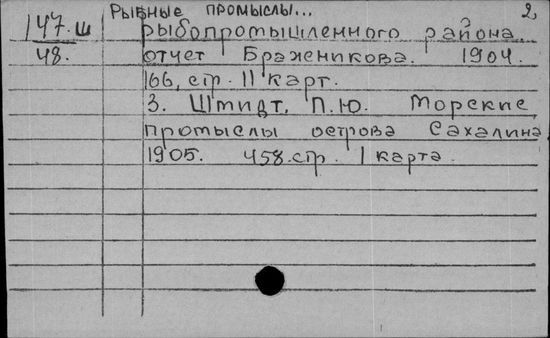 Рыбные промыслы... 2.
147.ш рыбопромышленного района.
48. отчет Браженикова. 1904.
166, стр. 11 карт.
3. Штидт, П.Ю. Морские
промыслы острова Сахалина
1905. 458.стр. 1 карта.